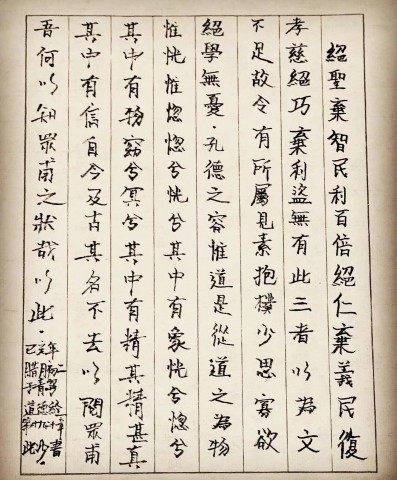 絕聖棄智民利百倍絕仁棄義民復
孝慈絕巧棄利盜無有此三者以為文
不足故令有所屬見素抱樸少思寡欲
絕學無憂·孔德之容惟道是從道之為物
惟恍惟惚惚兮恍兮其中有象恍兮惚兮
其中有物窈兮冥兮其中有精其精甚真
其中有信自今及古其名不去以閱眾甫
吾何以知眾甫之狀哉以此·